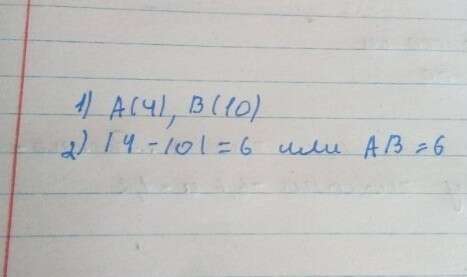 1) A(4), B(10)
2) |4 - 10| = 6 или AB = 6